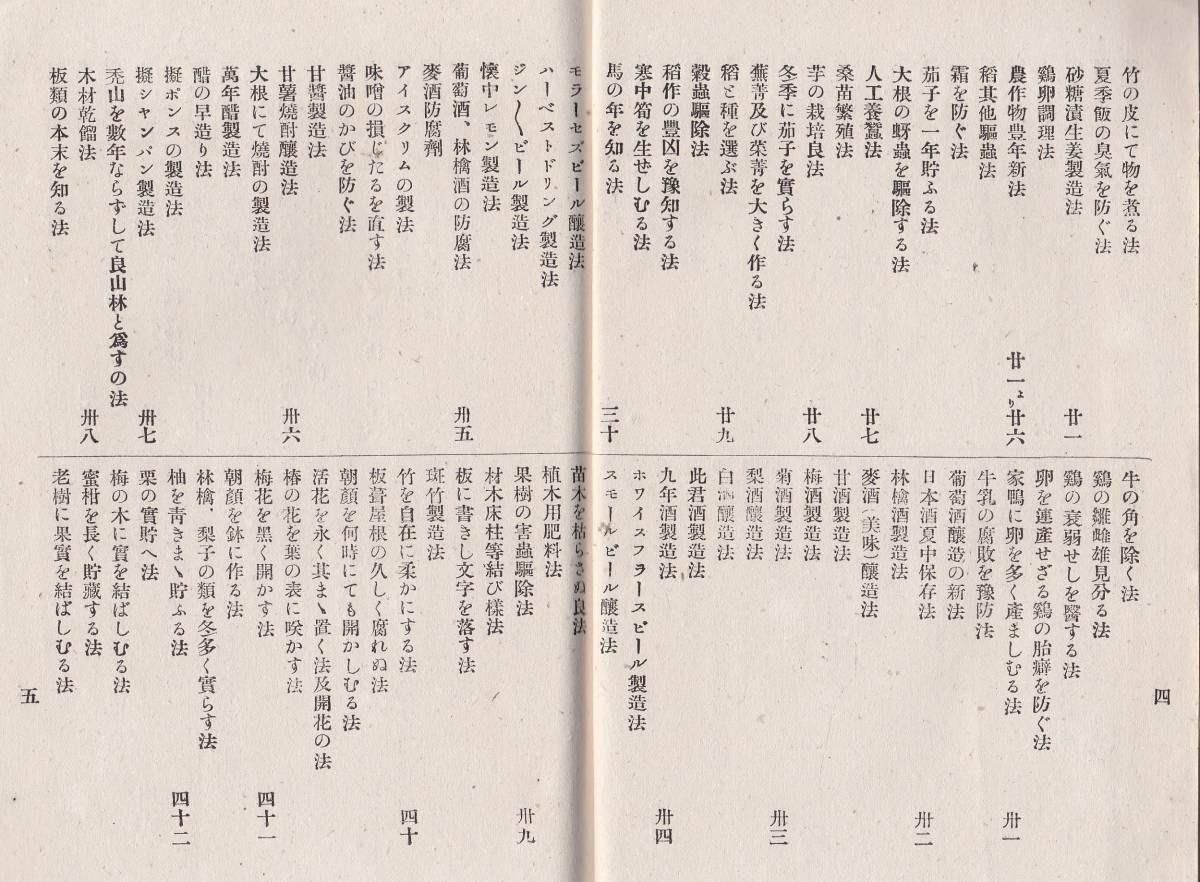 四
竹の皮にて物を煮る法
夏季飯の臭氣を防ぐ法
砂糖漬生姜製造法 廿一
鷄卵調理法
農作物豊年新法 廿一より廿六
稻其他驅蟲法
霜を防ぐ法
茄子を一年貯ふる法
大根の蚜蟲を驅除する法
人工養蠶法 廿七
桑苗繁殖法
芋の栽培良法 廿八
冬季に茄子を實らす法
蕪菁及び菜菁を大きく作る法
稻と種を選ぶ法 廿九
穀蟲驅除法
稻作の豊凶を豫知する法
寒中筍を生せしむる法
馬の年を知る法 三十
牛の角を除く法
鷄の雛雌雄見分る法
鷄の衰弱せしを醫する法
卵を連產せざる鷄の胎癖を防ぐ法
家鴨に卵を多く產ましむる法 卅一
牛乳の腐敗を豫防法
葡萄酒釀造の新法
日本酒夏中保存法 卅二
林檎酒製造法
麥酒(美味)釀造法
甘酒製造法
梅酒製造法
菊酒製造法 卅三
梨酒釀造法
白酒釀造法
此君酒製造法
九年酒製造法 卅四
ホワイスフラースビール製造法
スモールビール釀造法
モラーセズビール釀造法
ハーベストドリング製造法
ジン〱ビール製造法
懷中レモン製造法
葡萄酒、林檎酒の防腐法 卅五
麥酒防腐劑
アイスクリムの製法
味噌の損じたるを直す法
醬油のかびを防ぐ法
甘醬製造法
甘薯燒酎釀造法 卅六
大根にて燒酎の製造法
萬年醋製造法
醋の早造り法
擬ポンスの製造法
擬シャンパン製造法 卅七
禿山を數年ならずして良山林と爲すの法
木材乾餾法 卅八
板類の本末を知る法
苗木を枯らさぬ良法
植木用肥料法
果樹の害蟲驅除法 卅九
材木床柱等結び樣法
板に書きし文字を落す法
斑竹製造法
竹を自在に柔かにする法 四十
板葺屋根の久しく腐れぬ法
朝顔を何時にても開かしむる法
活花を永く其まゝ置く法及開花の法
椿の花を葉の表に咲かす法
梅花を黒く開かす法 四十一
朝顔を鉢に作る法
林檎、梨子の類を冬多く實らす法
柚を青きまゝ貯ふる法 四十二
栗の實貯へ法
梅の木に實を結ばしむる法
蜜柑を長く貯藏する法
老樹に果實を結ばしむる法
五